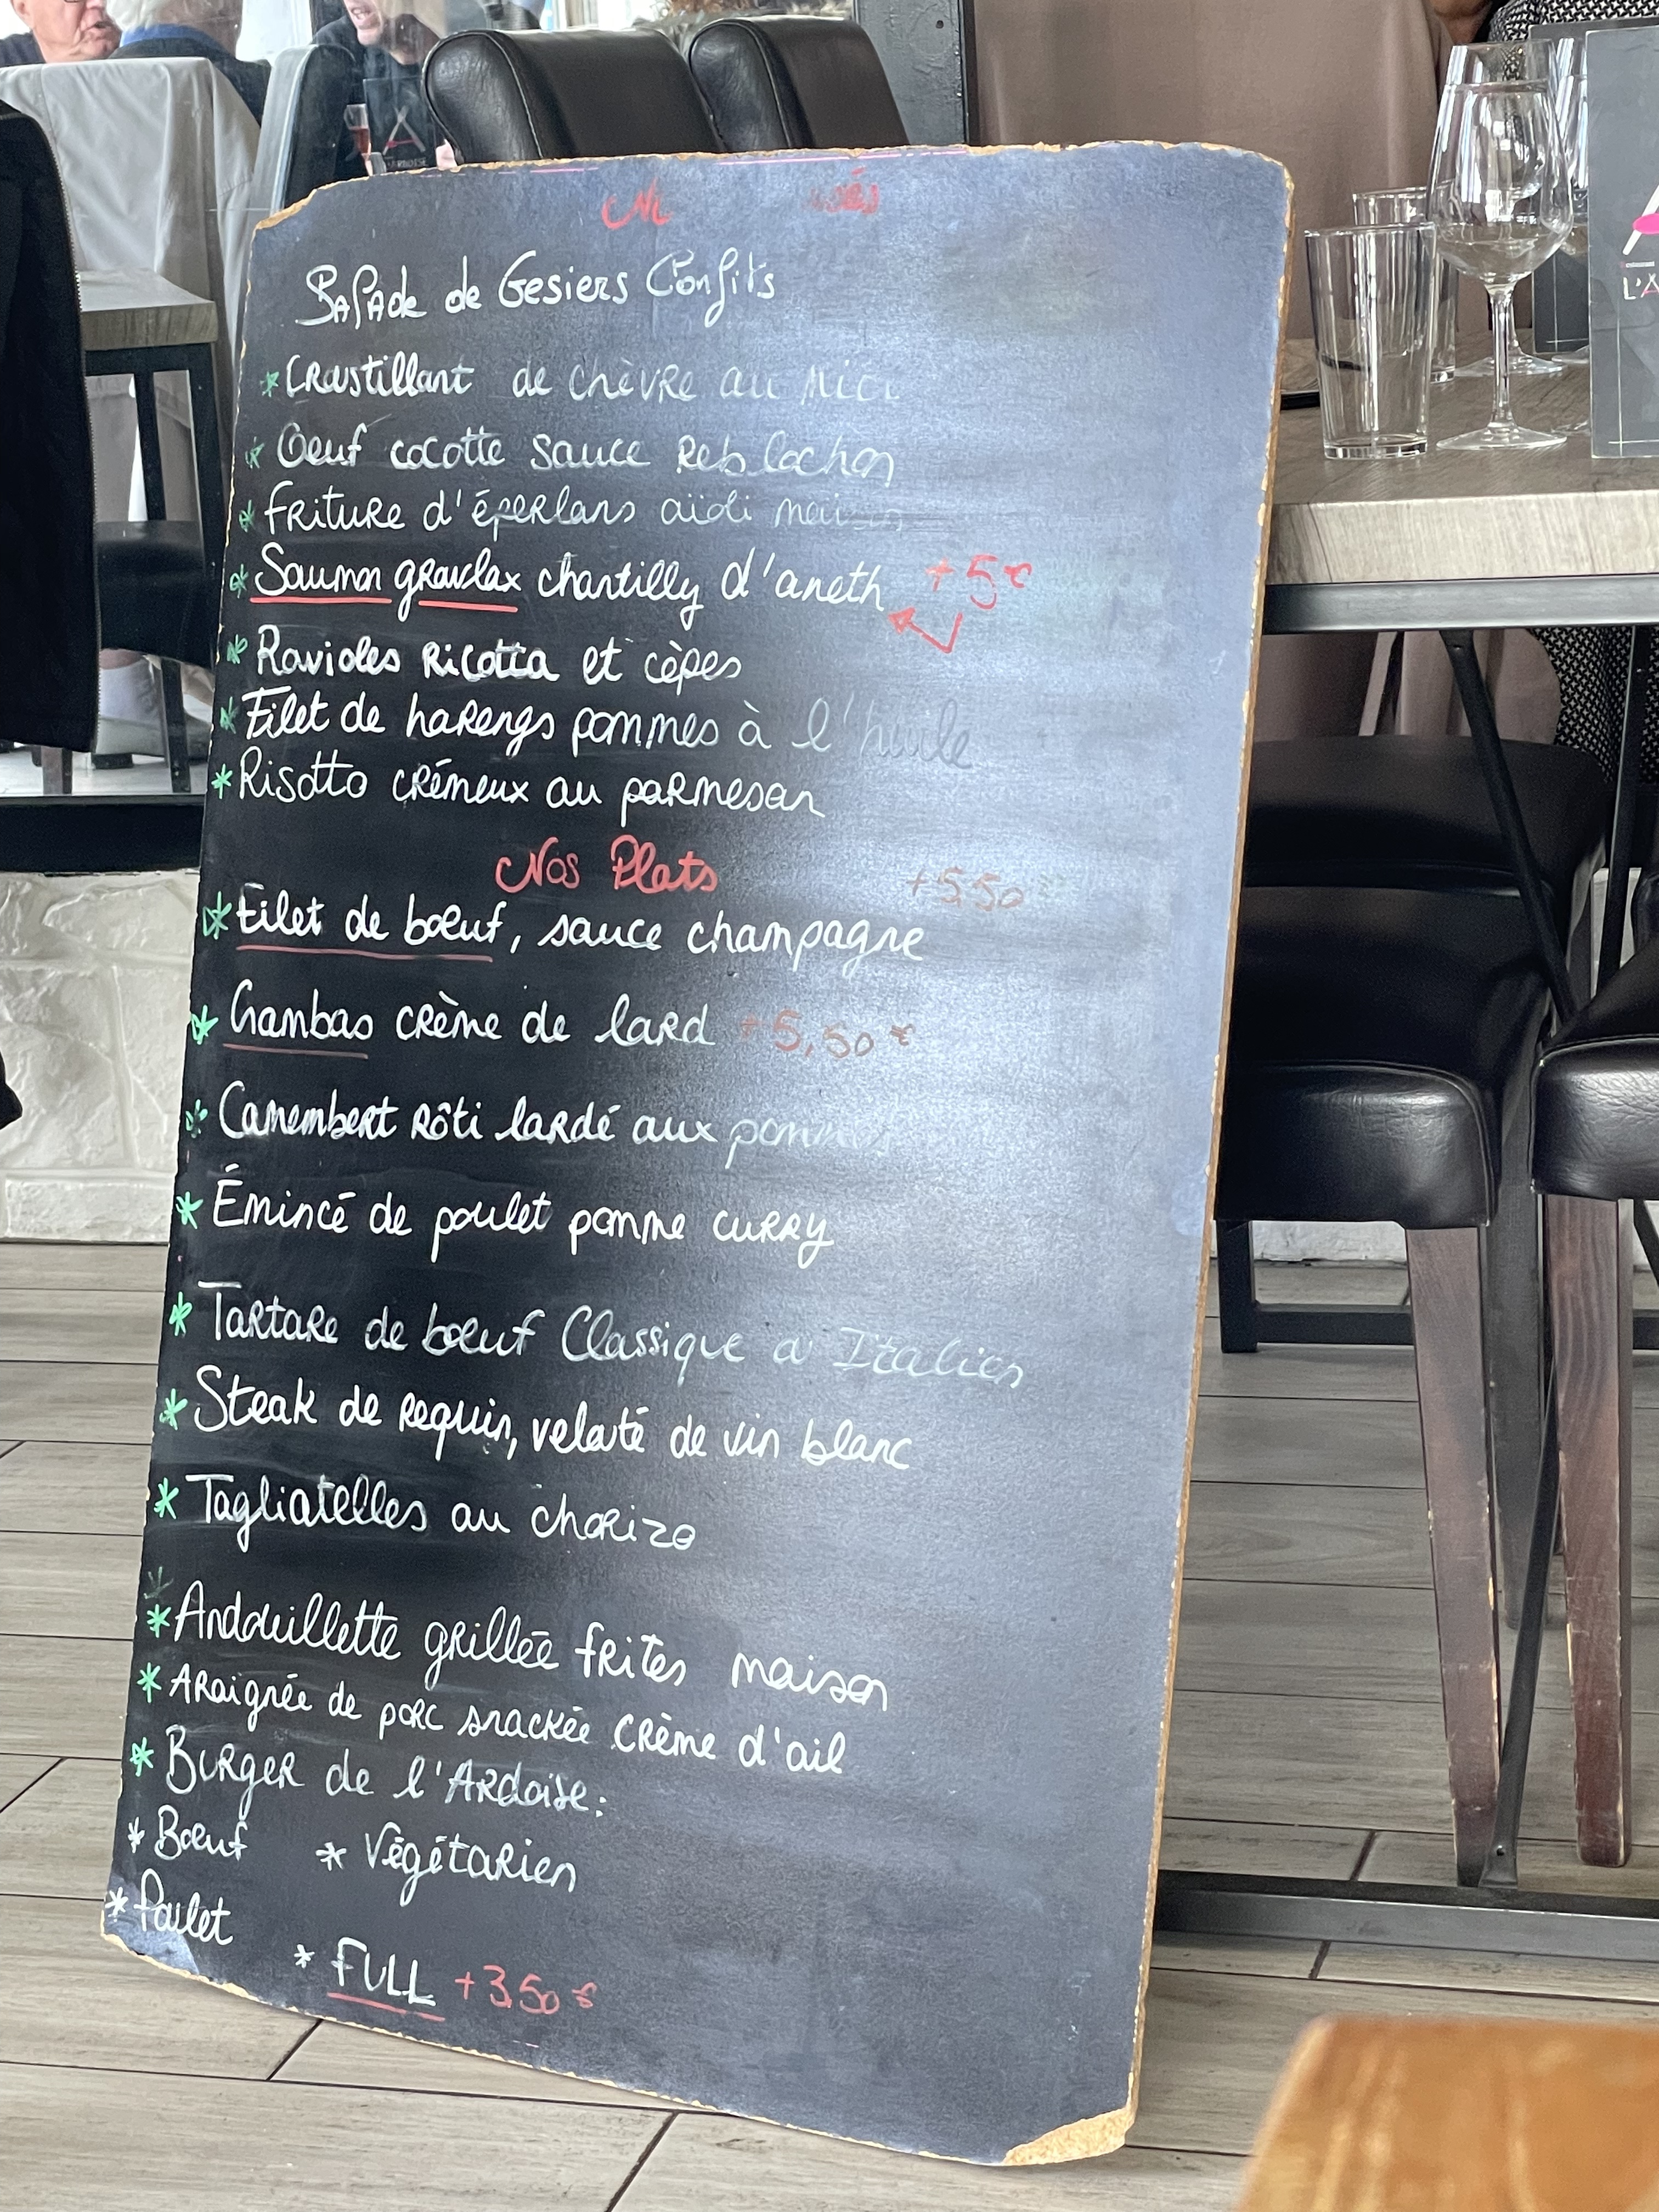 Salade de Gesiers Confits
* Croustillant de chèvre au Miel
* Oeuf cocotte sauce Reblochon
* Friture d'éperlans aïoli maison
* Saumon gravlax chantilly d'aneth +5€
* Ravioles Ricotta et cèpes
* Filet de harengs pommes à l'huile
* Risotto crémeux au parmesan
Nos Plats
+5.50
* Filet de bœuf, sauce champagne
* Gambas crème de lard +5,50€
* Camembert Rôti lardé aux
* Émincé de poulet pomme curry
* Tartare de bœuf Classique
* Steak de requin, velouté de vin blanc
* Tagliatelles au chorizo
* Andouillette grillée frites maison
* Araignée de porc snackée crème d'ail
* Burger de l'Ardoise:
* Bœuf * Végétarien
* Poulet
* FULL +3.50€